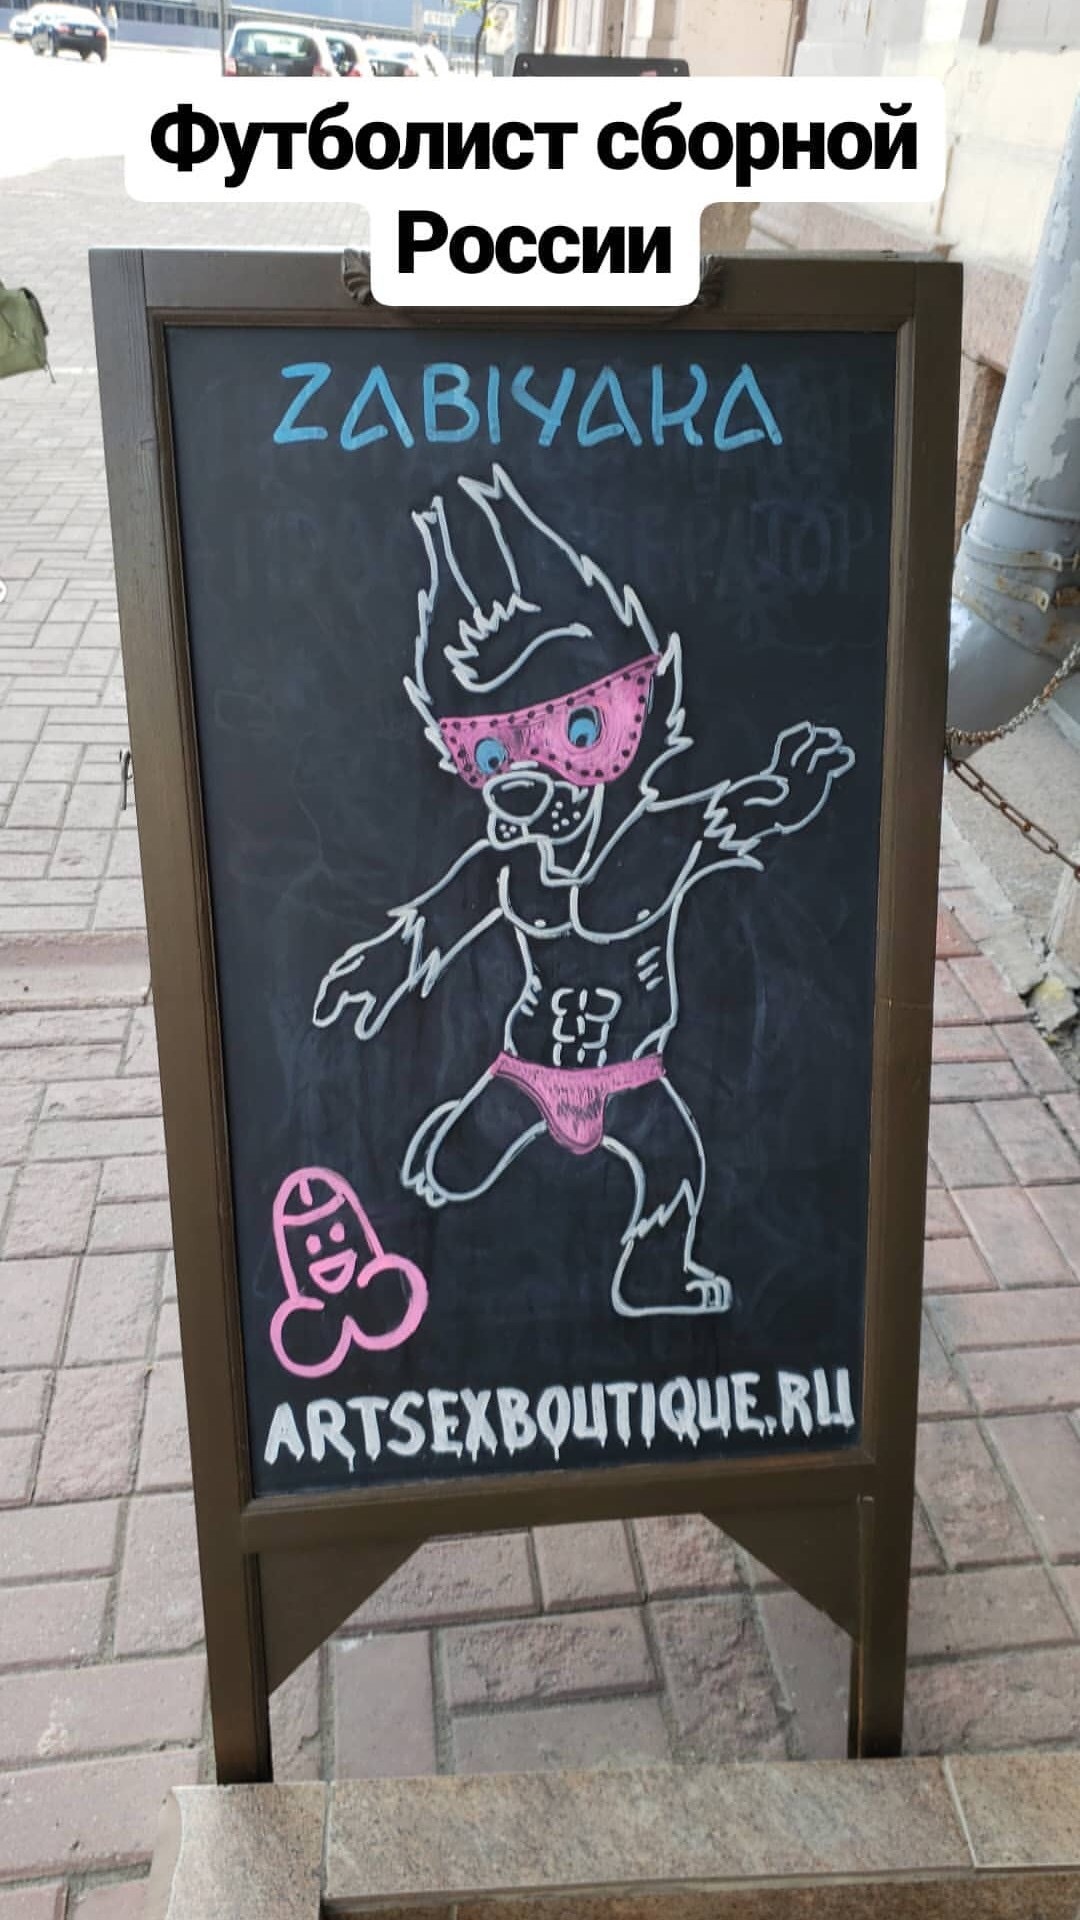 Футболист сборной
России
ZABIYAKA
ARTSEXBOUTIQUE.RU